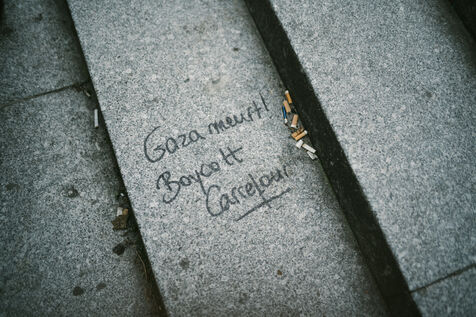 Gaza meurt!
Boycott
Carrefour